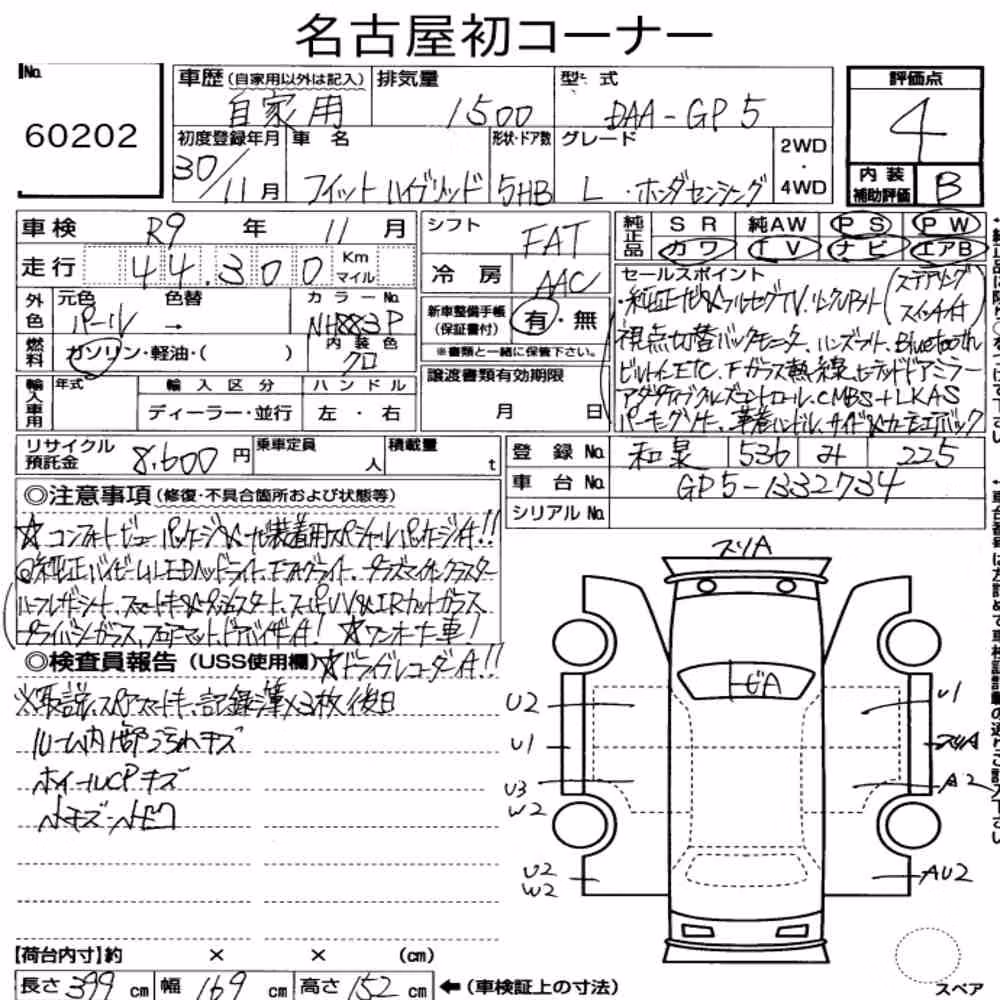 名古屋初コーナー
No. 60202
車歴(自家用以外は記入) 自家用
排気量 1500
型式 DAA-GP5
評価点 4
初度登録年月 30/11月
車名 フィットハイブリッド
形状・ドア数 5HB
グレード L・ホンダセンシング
2WD・4WD
内装補助評価 B
車検 R9年 11月
シフト FAT
純正品 SR 純AW PS PW
カワ TV ナビ エアB
走行 44.300 Km マイル
冷房 AAC
外色 元色 パール 色替 →
カラーNo. NH883P
内装色 クロ
燃料 ガソリン・軽油・( )
新車整備手帳(保証書付) 有・無
※書類と一緒に保管下さい。
セールスポイント (ステアリングスイッチ付)
・純正ナビ&フルセグTV、
視点切替バックモニター、 Bluetooth
ビルトインETC、Fガラス熱線、セラードドアミラー
アダプティブクルーズコントロール、CMBS+LKAS
パーキングソナー、革巻ハンドル、サイド&カーテンエアバック
輸入車用 年式 輸入区分 ハンドル
ディーラー・並行 左・右
譲渡書類有効期限
月 日
リサイクル預託金 8,600円
乗車定員 人
積載量 t
登録No. 和泉 536 み 225
車台No. GP5-1332734
シリアルNo.
◎注意事項(修復・不具合箇所および状態等)
☆コンフォートビューパッケージ&ナビ装着用スペシャルパッケージ付!!
◎純正ハイビームLEDヘッドライト、Fフォグライト、プラズマイオンクラスター
ハーフレザーシート、スマートキー&プッシュスタート、スーパーUV&IRカットガラス
プライバシーガラス、フロアマット、ドアバイザー付! ☆ワンオーナー車!
◎検査員報告(USS使用欄) ☆ドライブレコーダー付!!
※取説、スペアスマートキー、記録簿×3枚後日
ルーム内部汚れキズ
ホイールCPキズ
小キズ・小ヒコ
スリA
トビA
U2
U1
U1
スリA
U3
W2
A2
U2
W2
AU2
【荷台内寸】約 × × (cm)
長さ 399 cm 幅 169 cm 高さ 152 cm ←(車検証上の寸法)
スペア